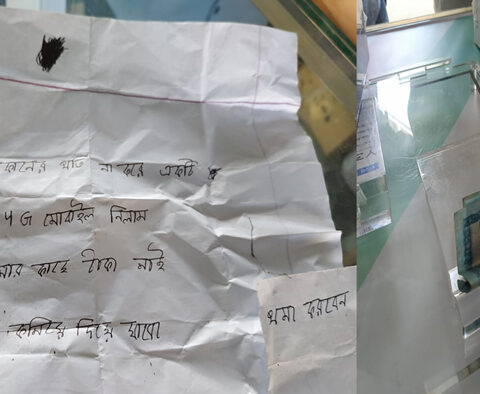 কানের খতি না করে একটি
4G মোবাইল নিলাম
মার কাছে টাকা নাই
দিয়ে যাবো
খমা করবেন